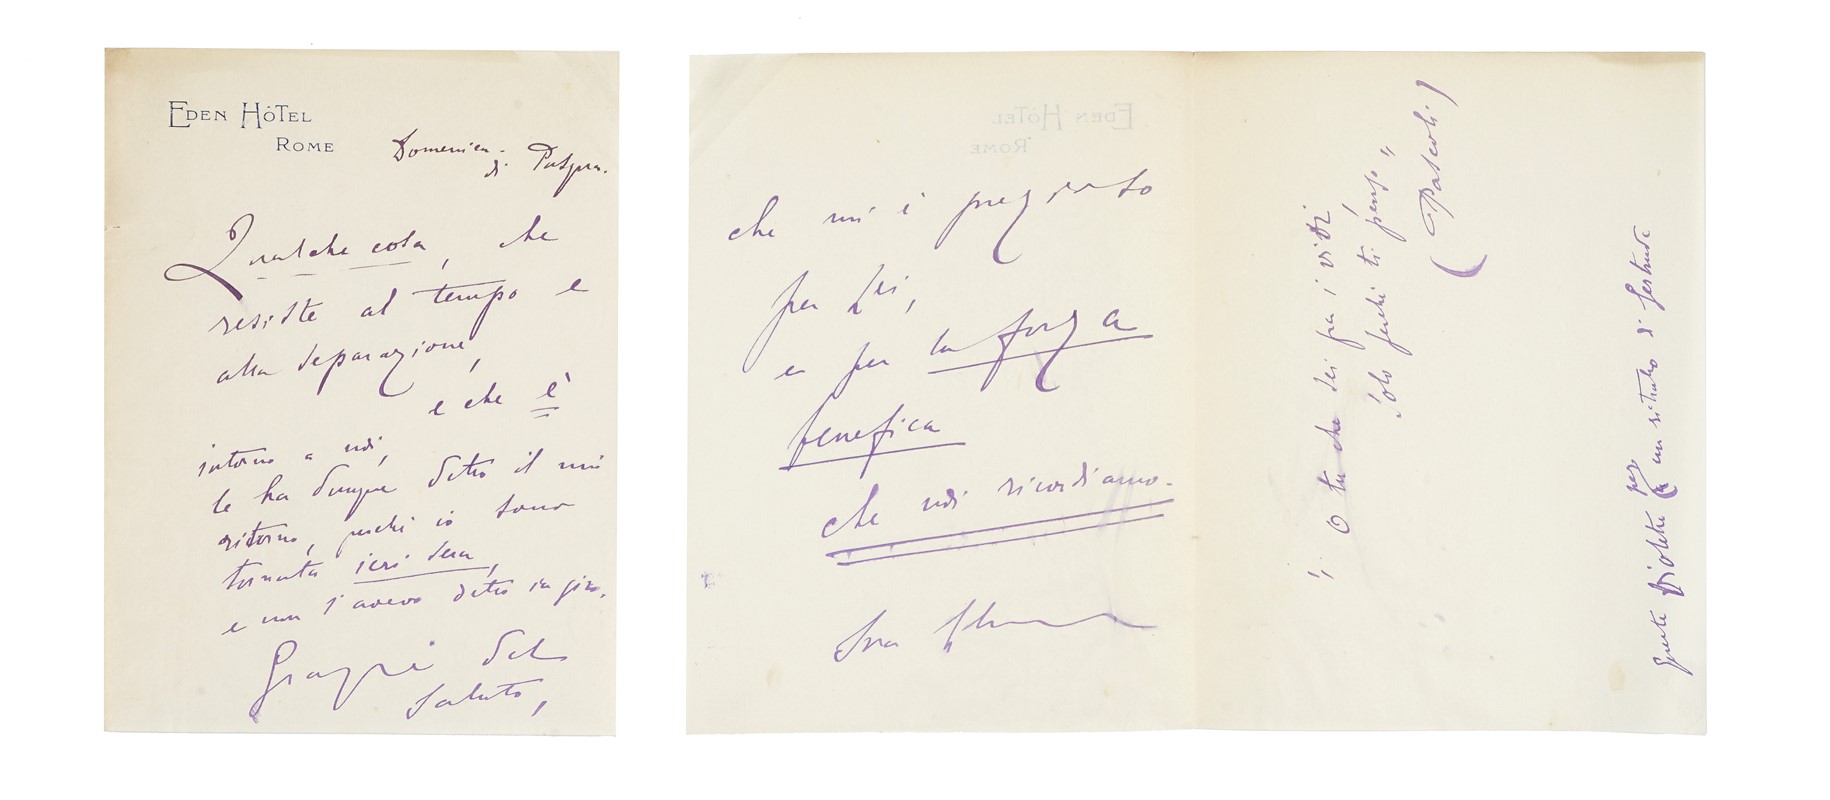 EDEN HÔTEL
ROME
Domenica -
di Pasqua.
Qualche cosa, che
resiste al tempo e
alla separazione,
e che è
intorno a noi,
le ha dunque detto il mio
ritorno, perché io sono
tornata ieri sera,
e non l'avevo detto in giro.
Grazie del
saluto,
che mi è prezioso
per Lei,
e per la forza
benefica
che noi ricordiamo.
Sua
"O tu che sei fra i vivi
solo perché ti penso"
(Pascoli)
queste violette per
un ritratto di Gertrude